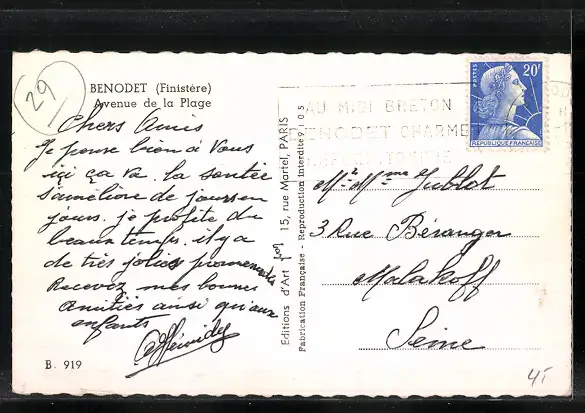 29
BENODET (Finistère)
Avenue de la Plage
Chers Amis
Je pense bien à Vous
ici ça va. la santée
s'améliore de jours en
jours. je profite du
beau temps. il y a
de très jolies promenades
Recevez mes bonnes
Amitiés ainsi qu'aux
enfants
B. 919
Editions d'Art 15, rue Martel, PARIS
Fabrication Française - Reproduction interdite 9.105
AU MIDI BRETON
BENODET CHARME
POSTES
20F
REPUBLIQUE FRANÇAISE
Mr Mme Jublot
3 Rue Béranger
Malakoff
Seine